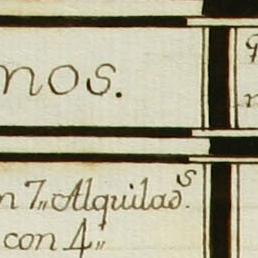 nos.
n 7,, Alquilad.s
con 4,,